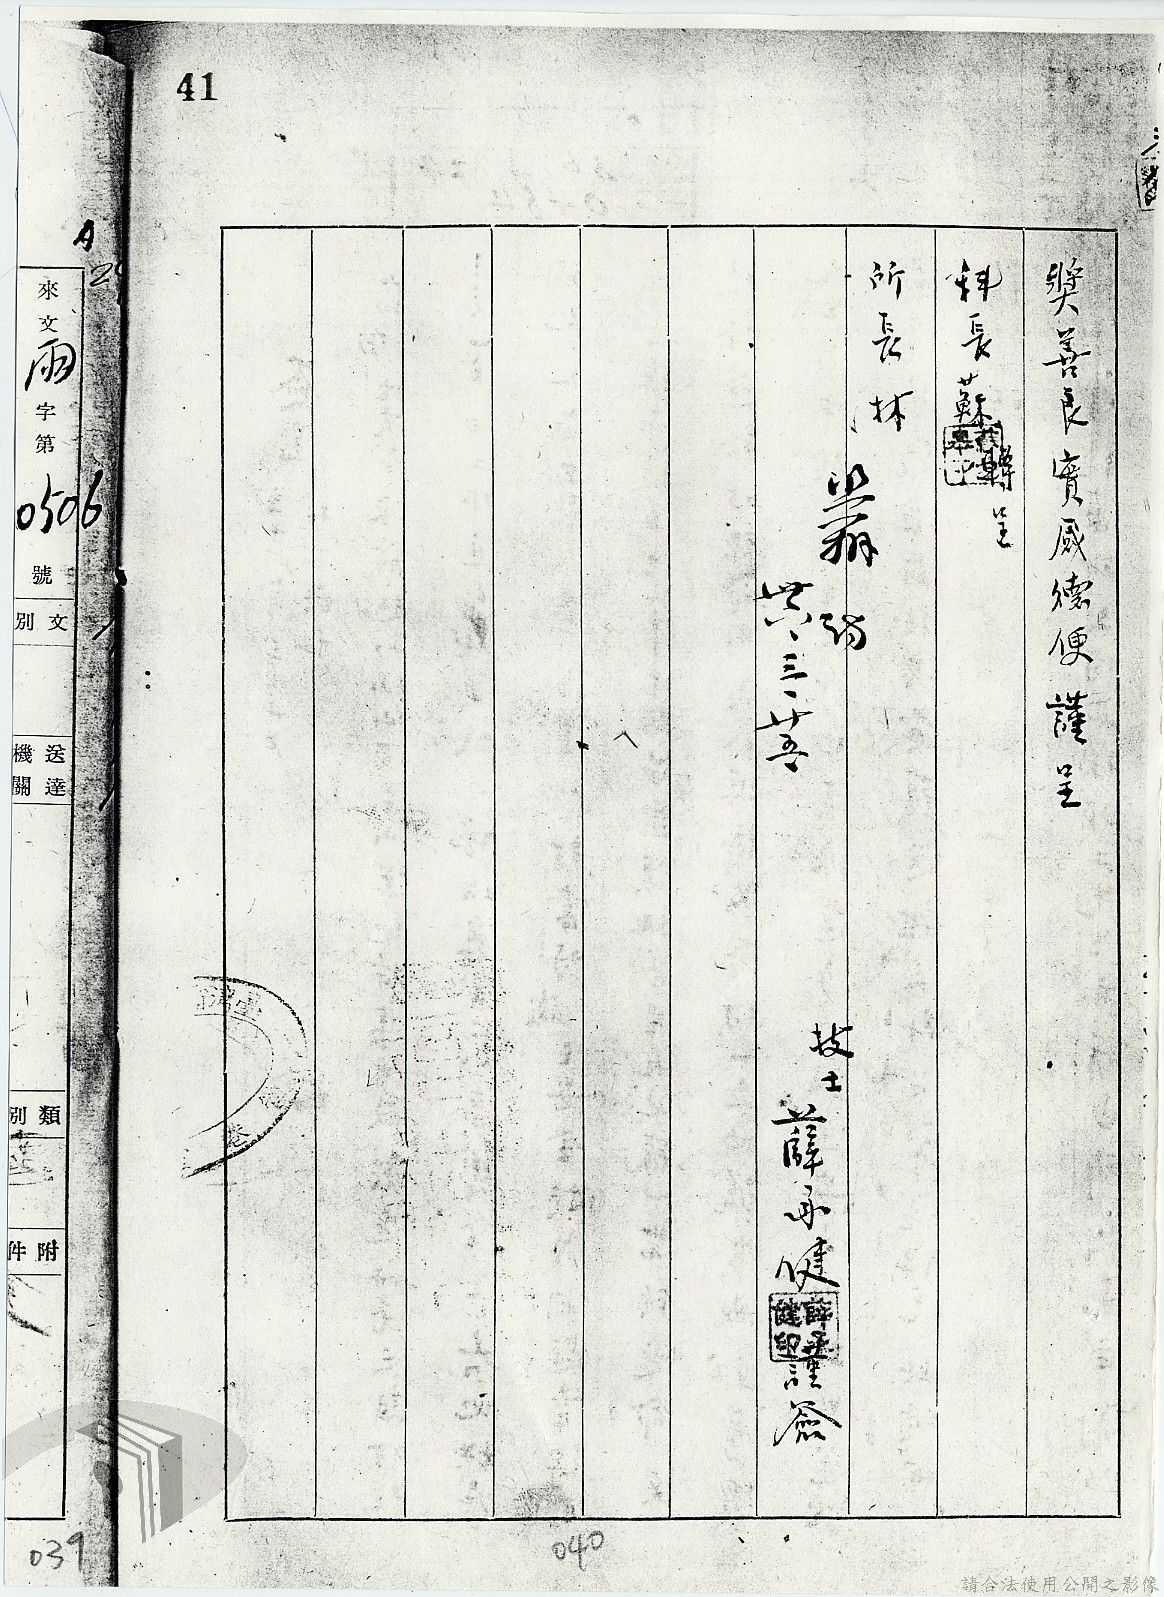 41
獎善良實感德便謹呈
科長蘇
轉呈
所長林
卅六、三、廿五
技士
薛承健
薛承健印
謹簽
來文
雨
字第
0506
號
文別
送達機關
類別
附件
039
040
請合法使用公開之影像